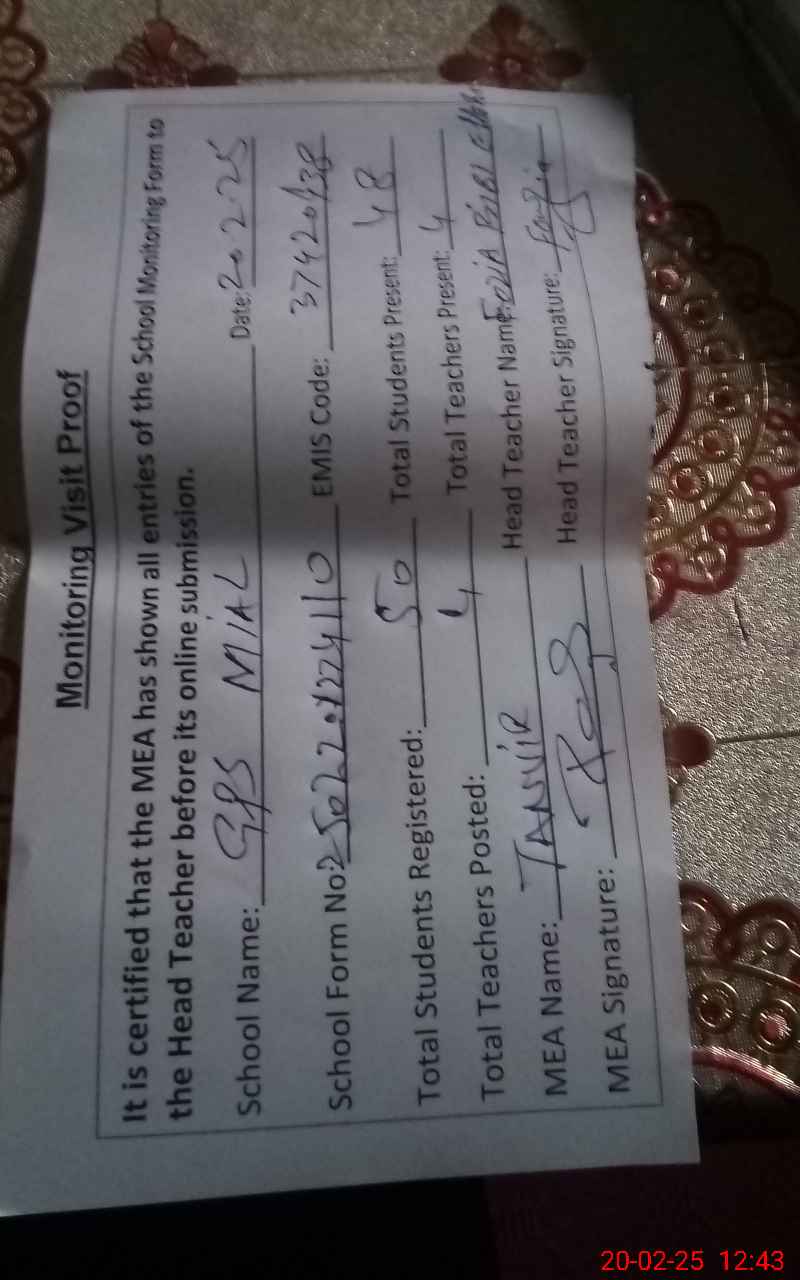 Monitoring Visit Proof
It is certified that the MEA has shown all entries of the School Monitoring Form to
the Head Teacher before its online submission.
School Name: GPS MIAL Date: 20.2.25
School Form No: EMIS Code: 37420138
Total Students Registered: 50 Total Students Present: 48
Total Teachers Posted: 4 Total Teachers Present: 4
MEA Name: TANVIR Head Teacher Name: FOZIA BIBI
MEA Signature: Head Teacher Signature: Fouzia
20-02-25 12:43